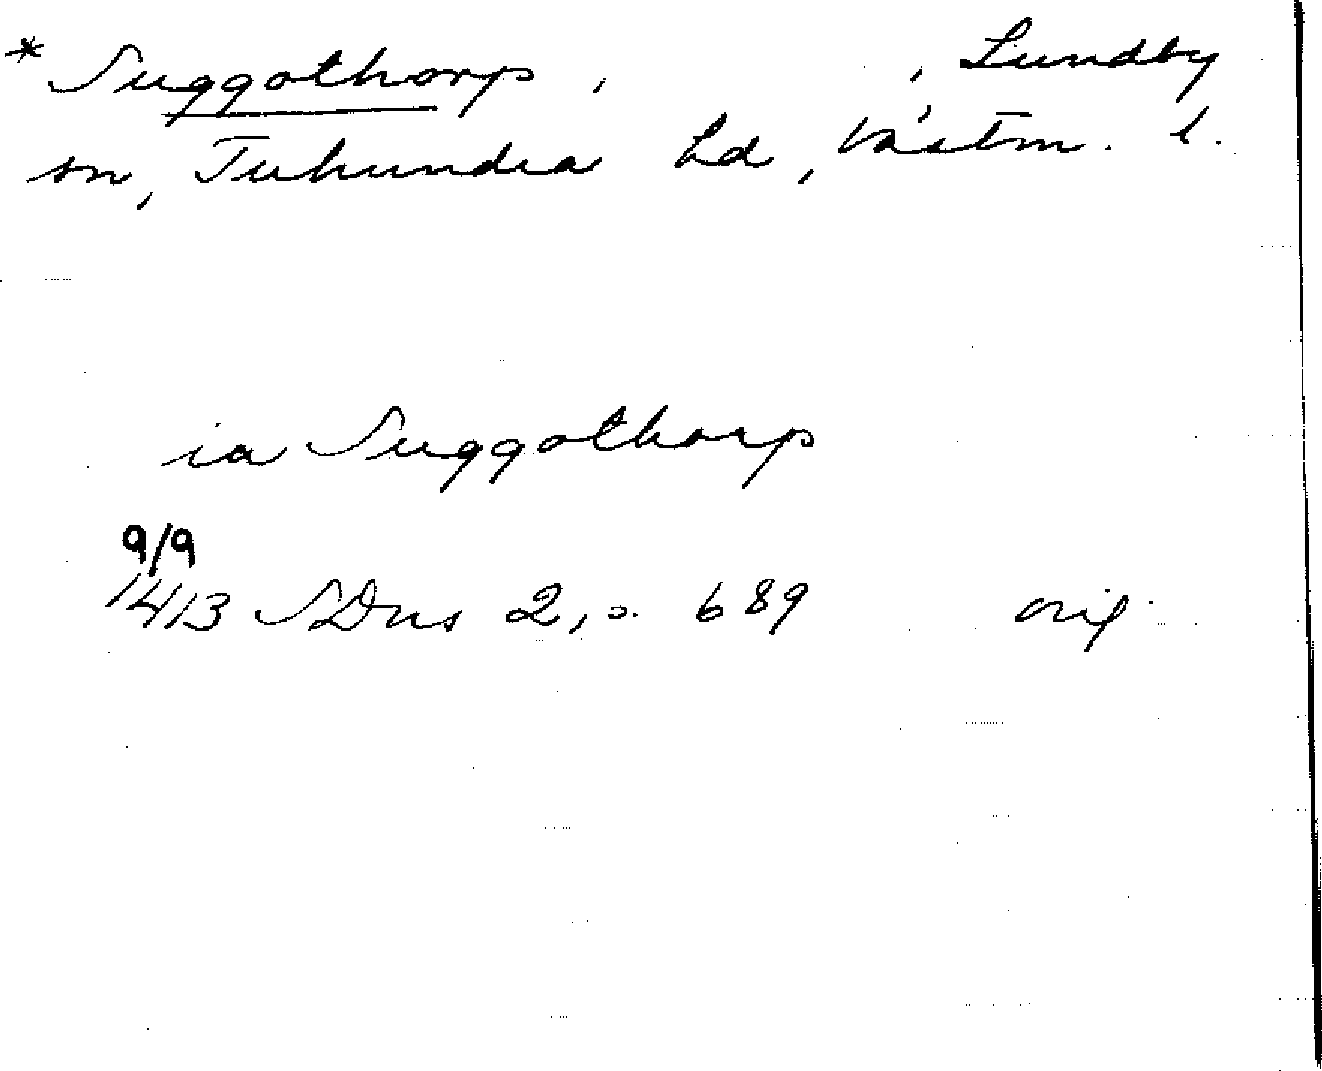 * Suggothorp, , Lundby
sn, Tuhundra hd, Västm. l.
ia Suggothorp
9/9
1413 SDns 2, s. 689 orig.